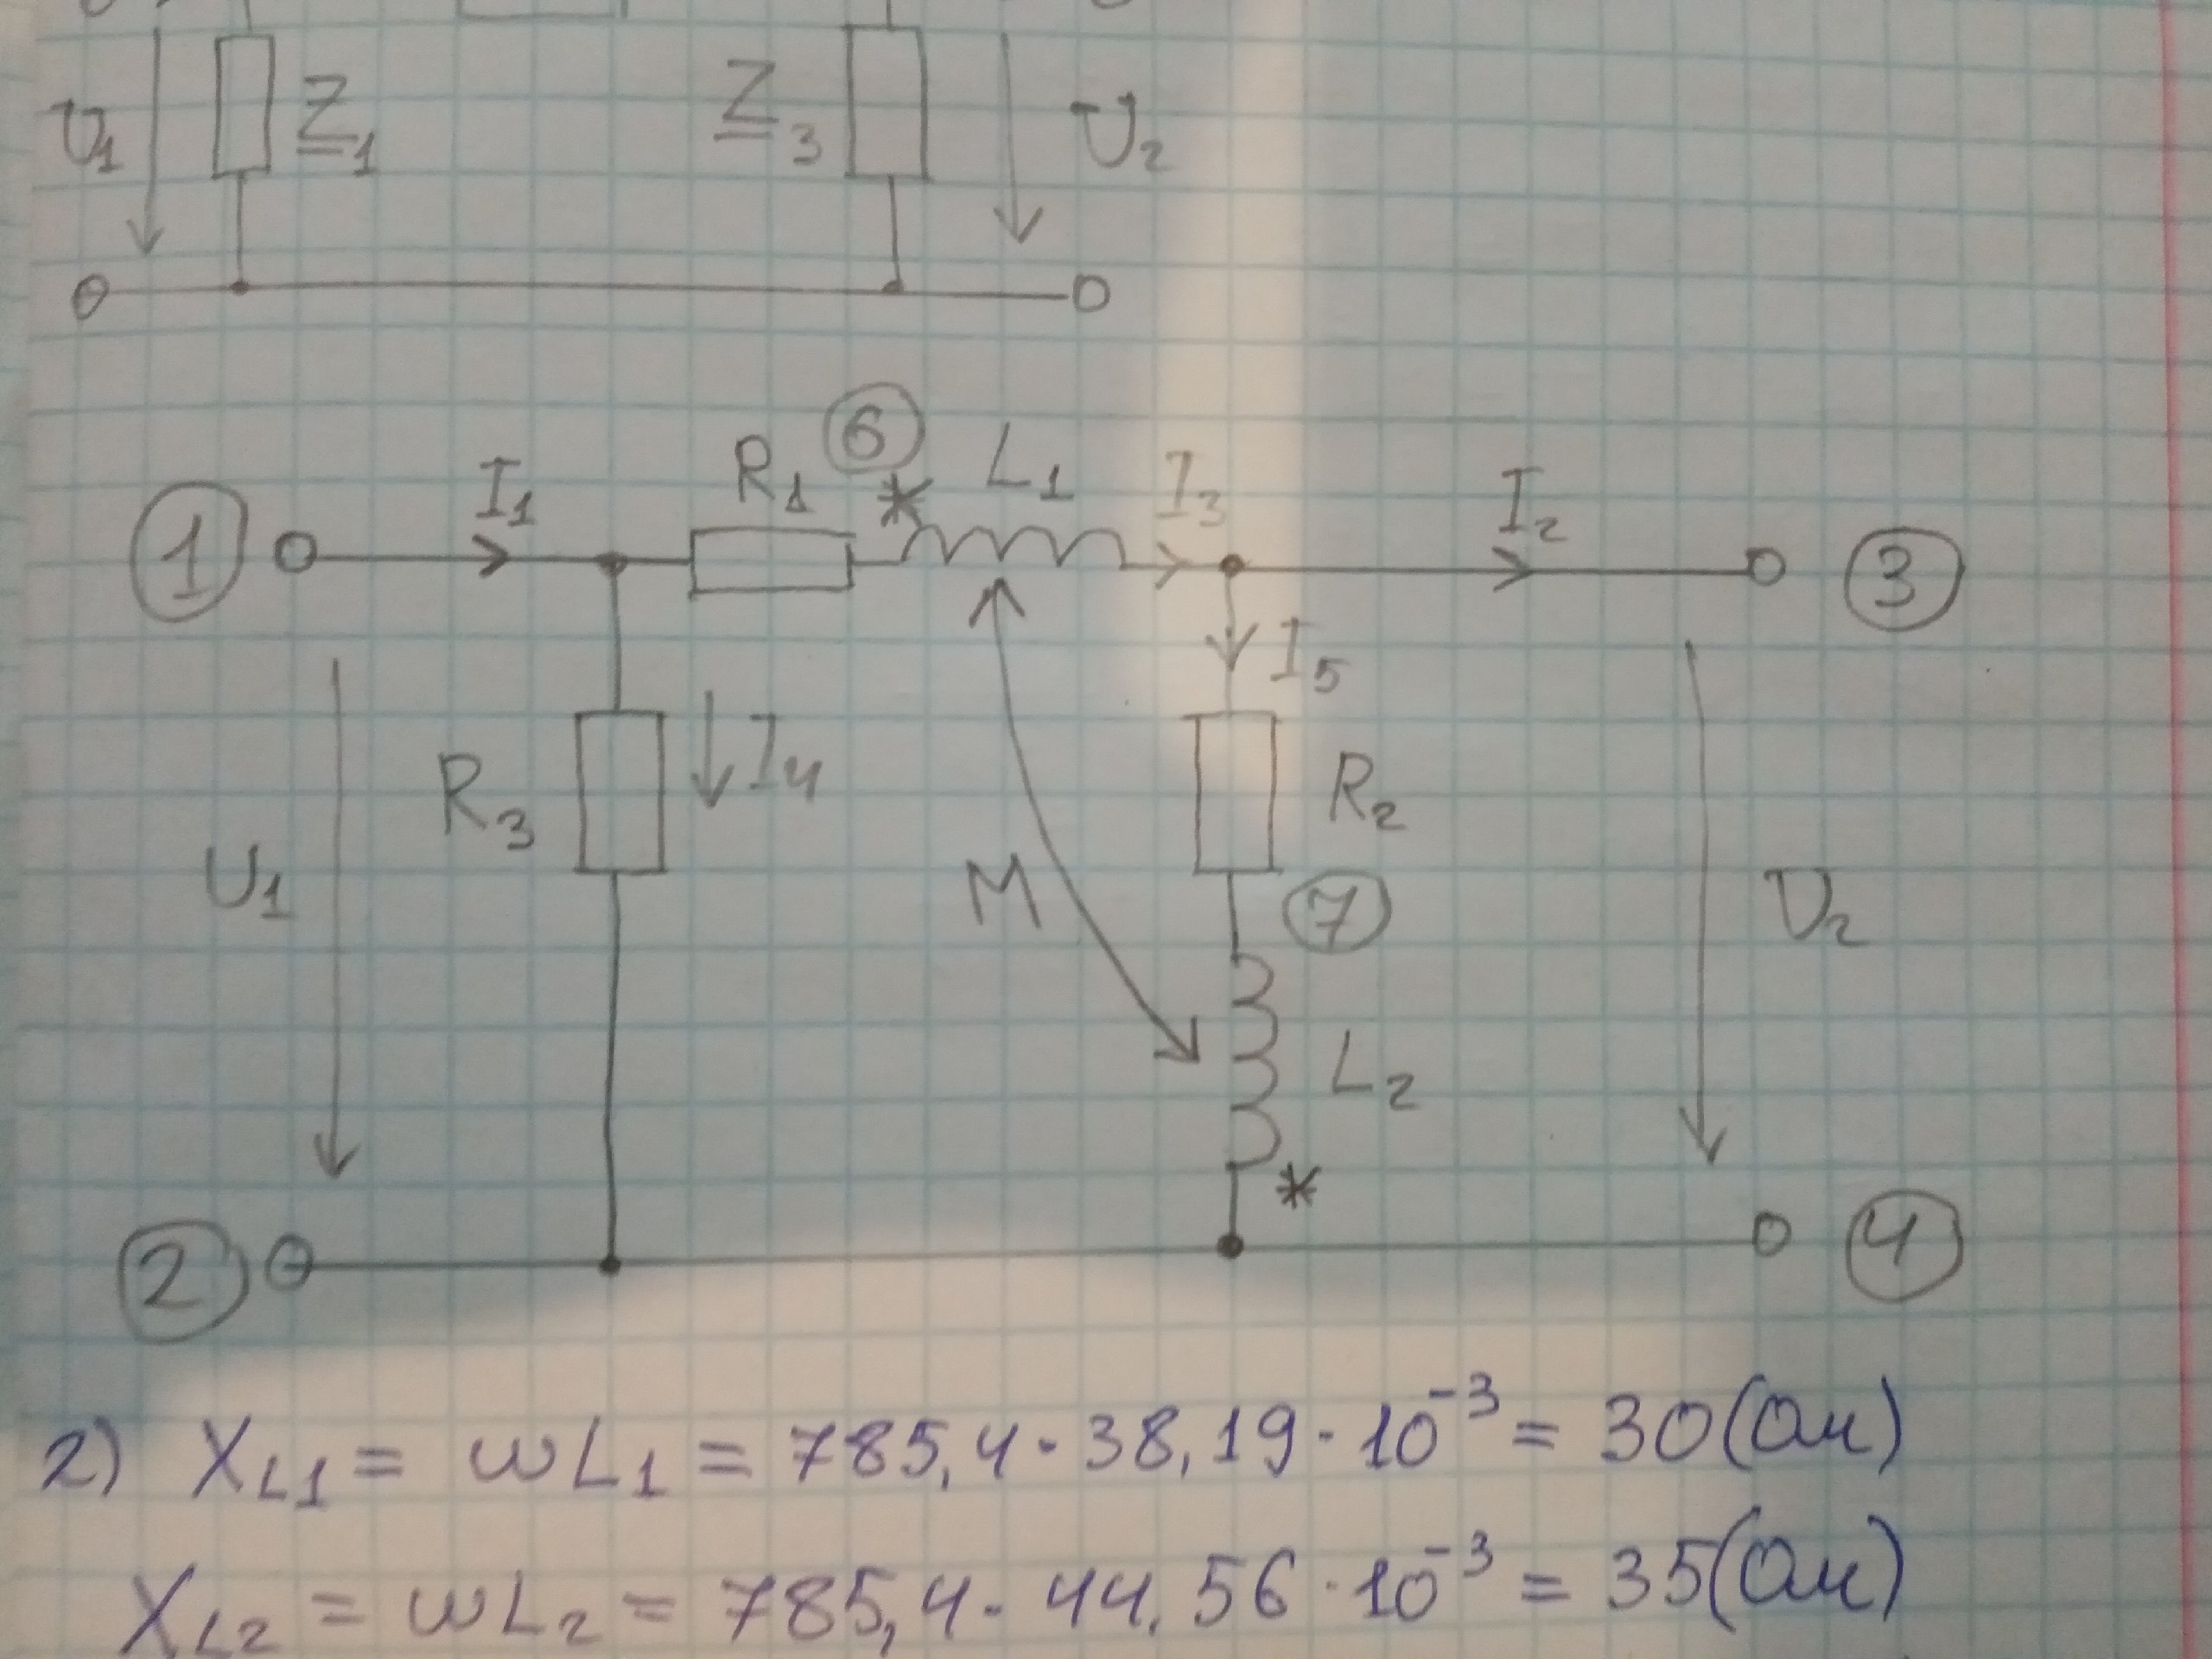 U1 Z1 Z3 U2
6
R1 * L1 I3
I1 I2
1 3
I5
R3 I4 R2
U1 M 7 U2
L2
*
2 4
2) XL1 = ωL1 = 785,4·38,19·10⁻³ = 30(Ом)
XL2 = ωL2 = 785,4·44,56·10⁻³ = 35(Ом)